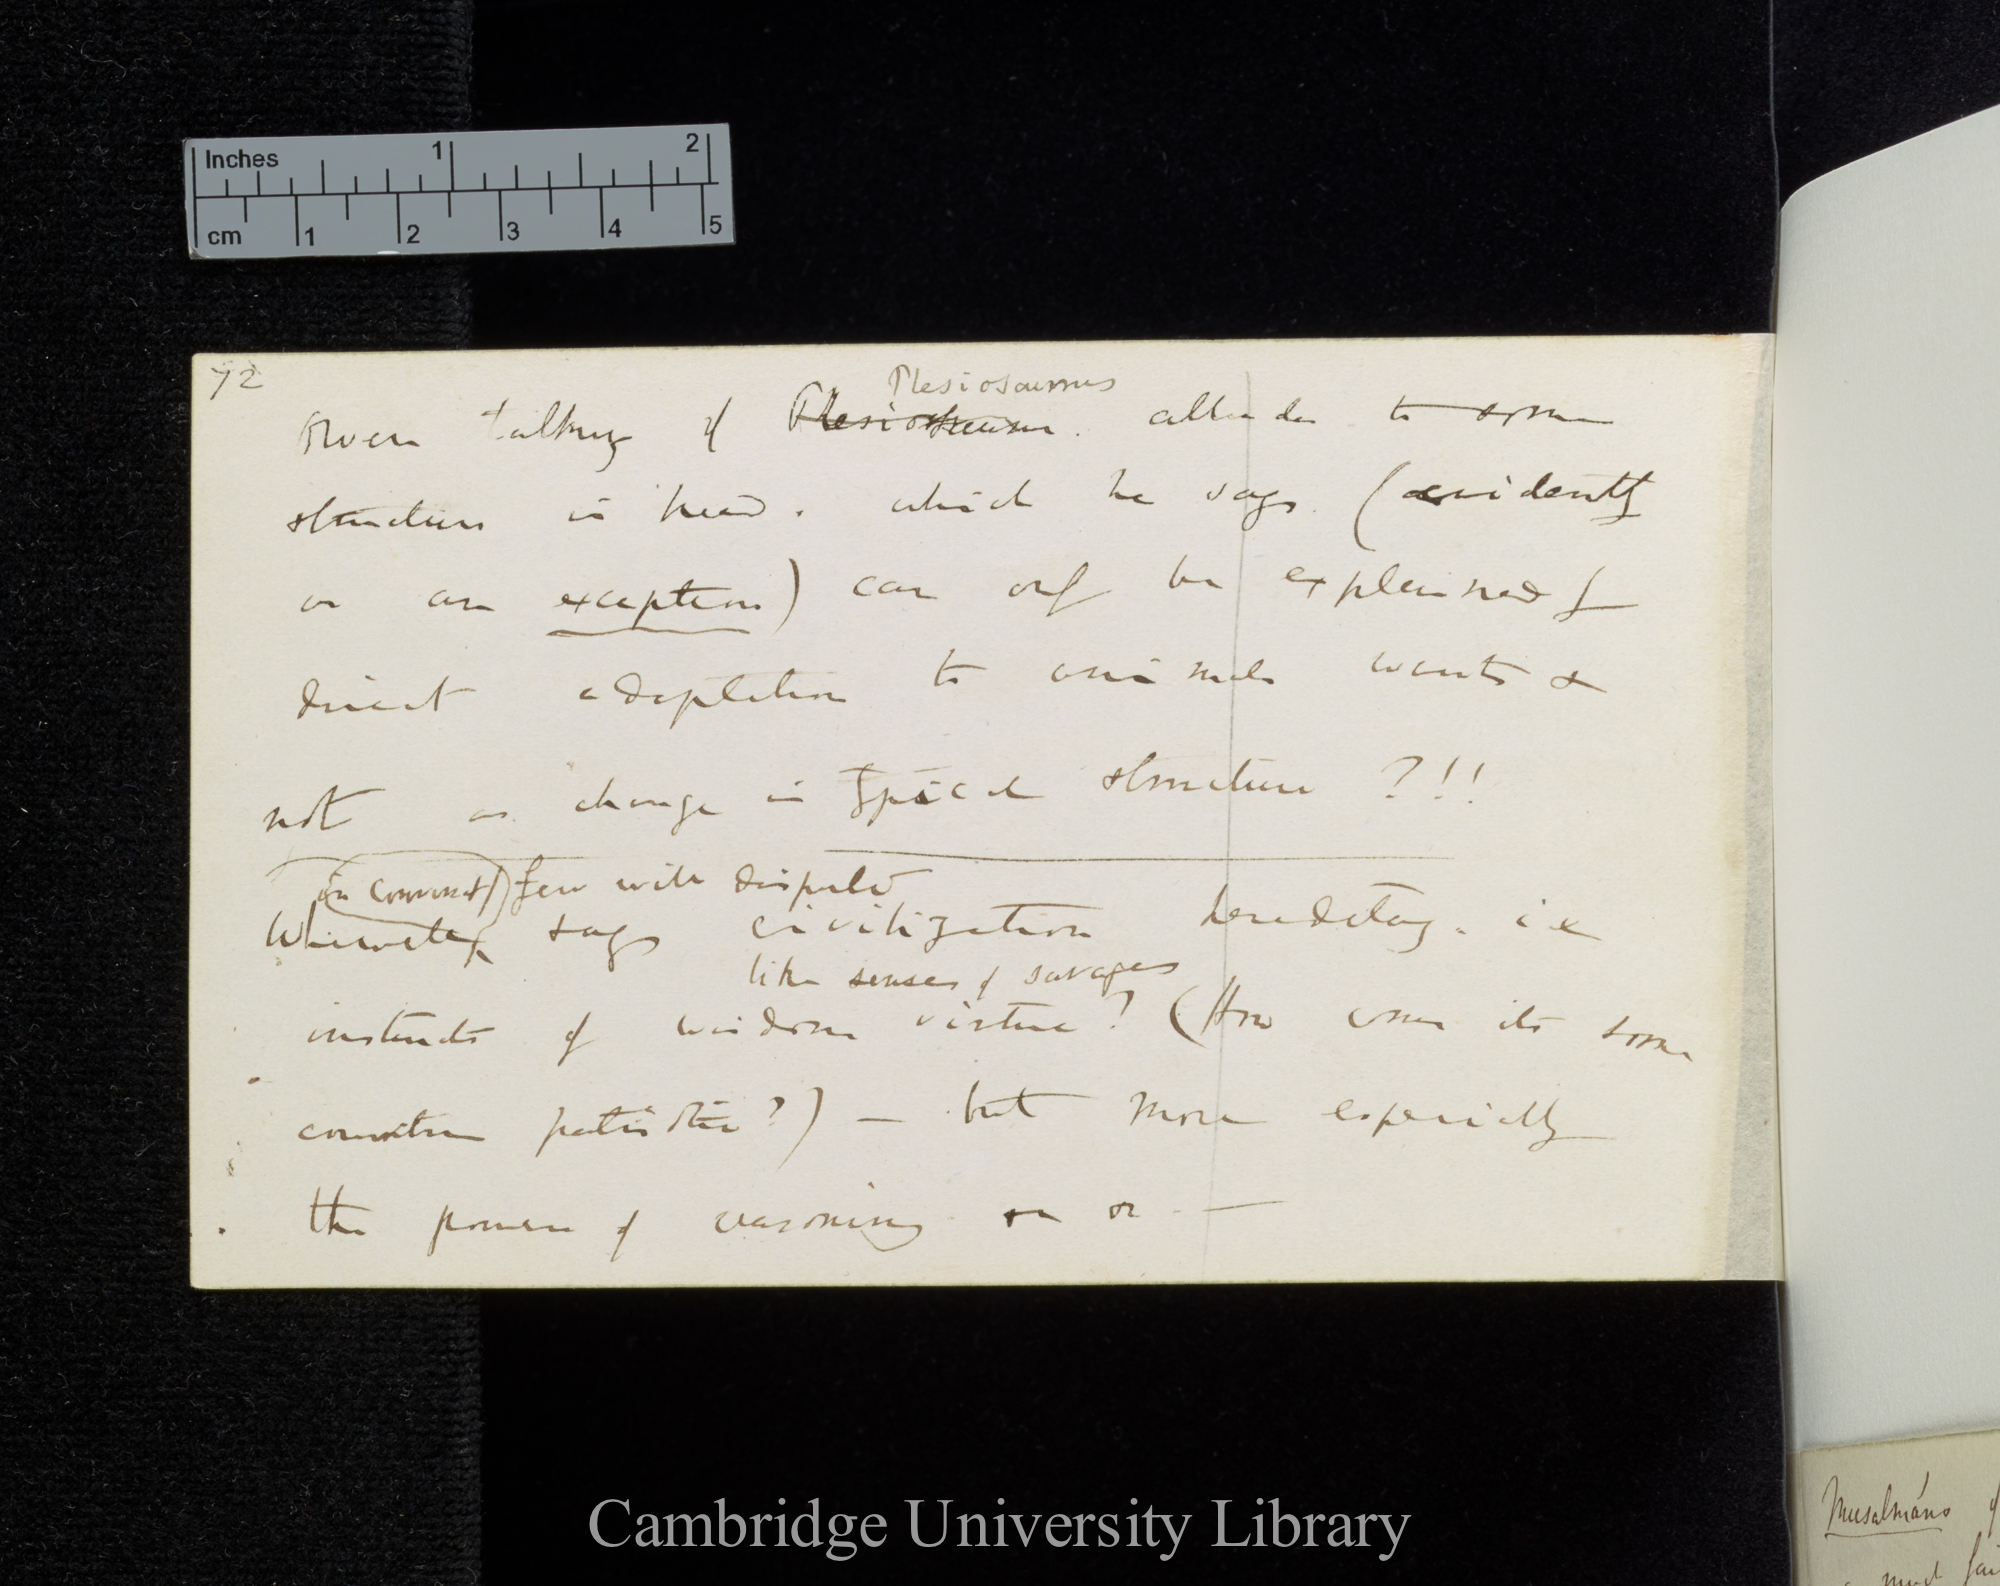 Inches 1 2
cm 1 2 3 4 5
72
Plesiosaurus
Owen talking of Plesiosaurus. alludes to some
structure in head. which he says (evidently
as an exception) can only be explained by
direct adaptation to animals wants &
not as change in typical structure ?!!
(in conversat) few will dispute
Whewell says civilization hereditary. i e
like senses of savages
instincts of wisdom virtue? (How comes its some
countries patriotic?) — but more especially
the powers of reasoning &c &c —
Cambridge University Library
Musalmáns of